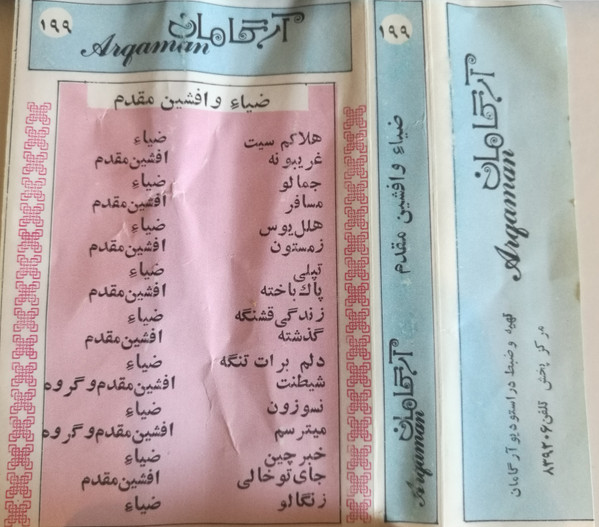 ۱۹۹
آرگامان
Arqaman
ضیاء و افشین مقدم
هلاکم سیت ضیاء
غریبونه افشین مقدم
جمالو ضیاء
مسافر افشین مقدم
هلل یوس ضیاء
زمستون افشین مقدم
تپلی ضیاء
پاک باخته افشین مقدم
زندگی قشنگه ضیاء
گذشته افشین مقدم
دلم برات تنگه ضیاء
شیطنت افشین مقدم و گروه
نسوزون ضیاء
میترسم افشین مقدم و گروه
خبرچین ضیاء
جای تو خالی افشین مقدم
زنگالو ضیاء
۱۹۹
ضیاء و افشین مقدم
آرگامان
Arqaman
آرگامان
Arqaman
تهیه و ضبط در استودیو آرگامان
مرکز پخش تلفن ۸۳۹۲۰۶